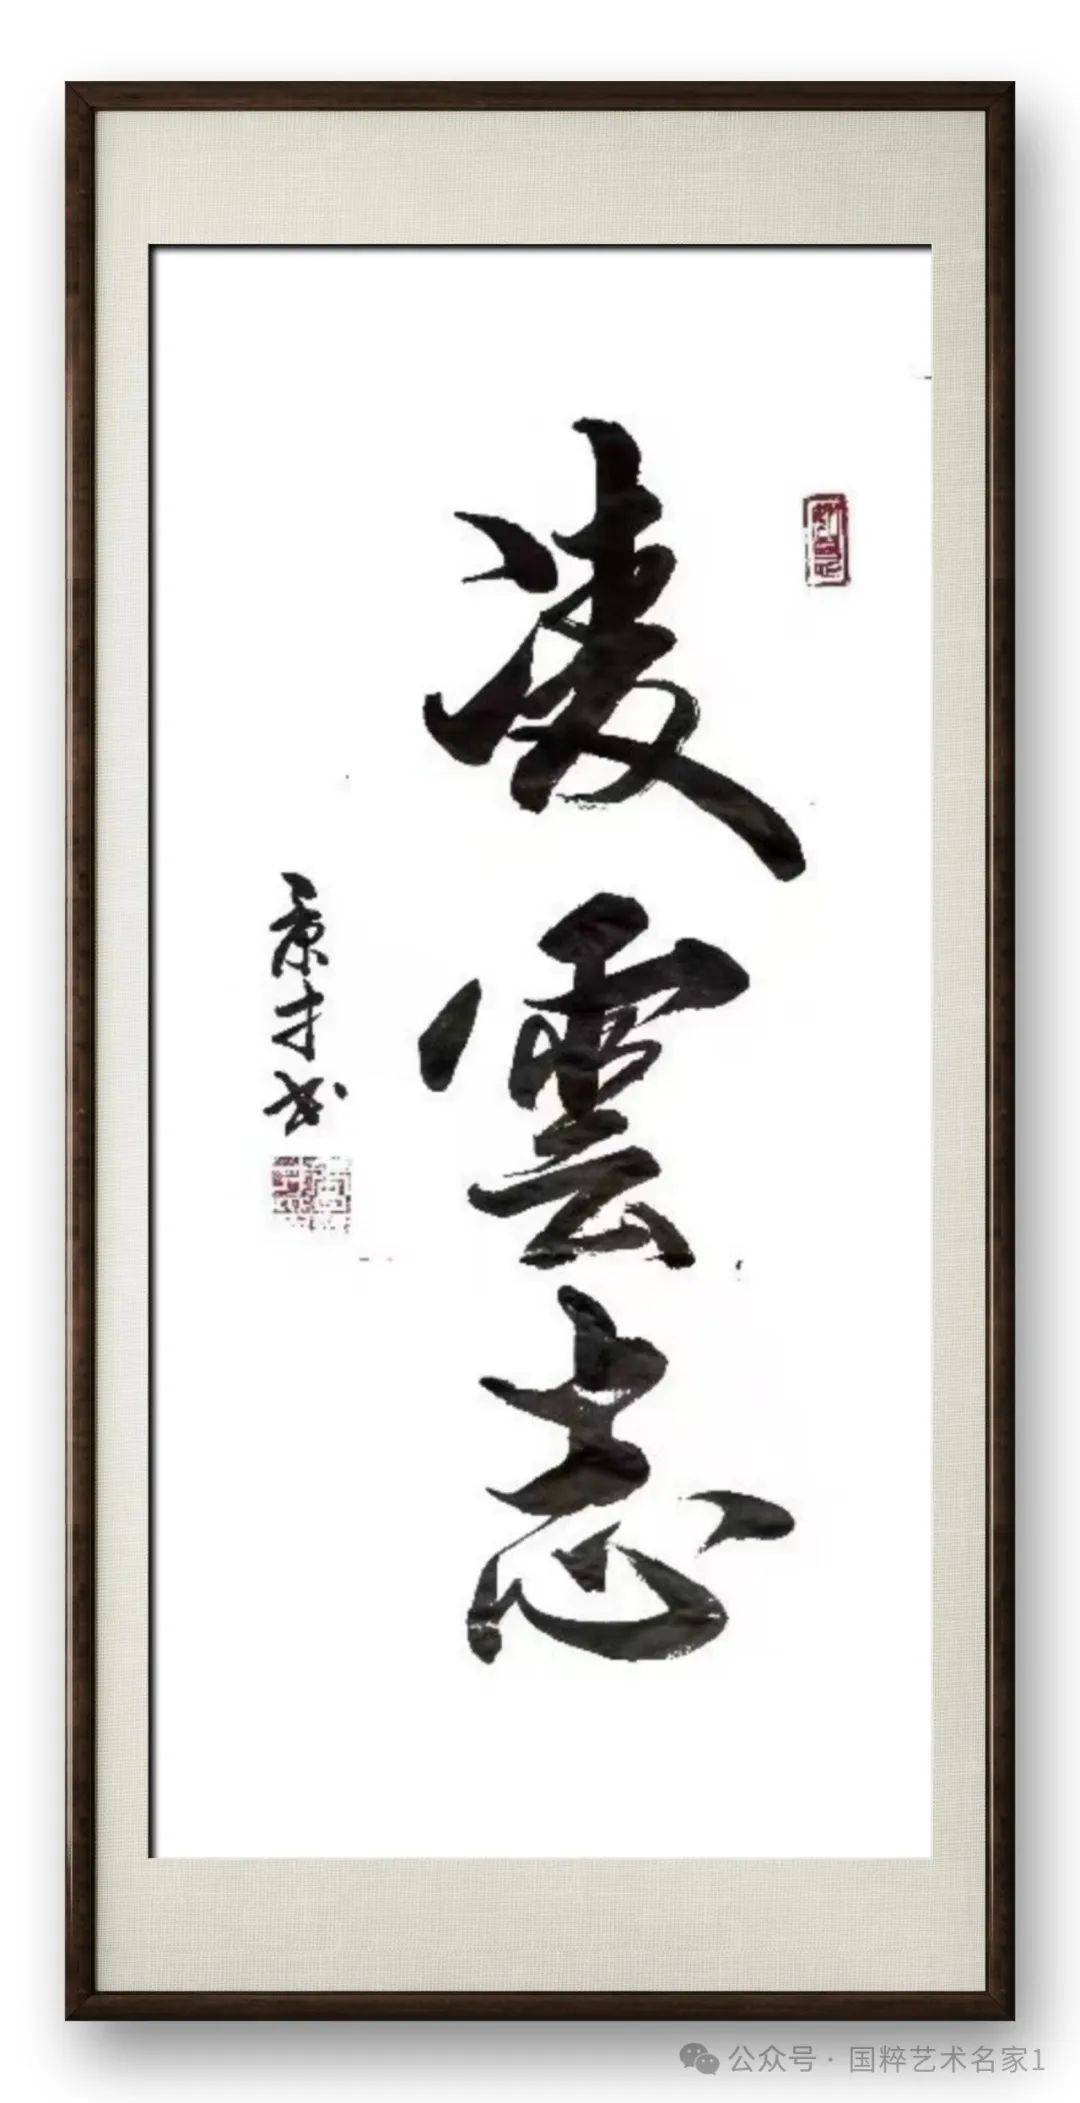 凌雲志
景才书
公众号 · 国粹艺术名家1